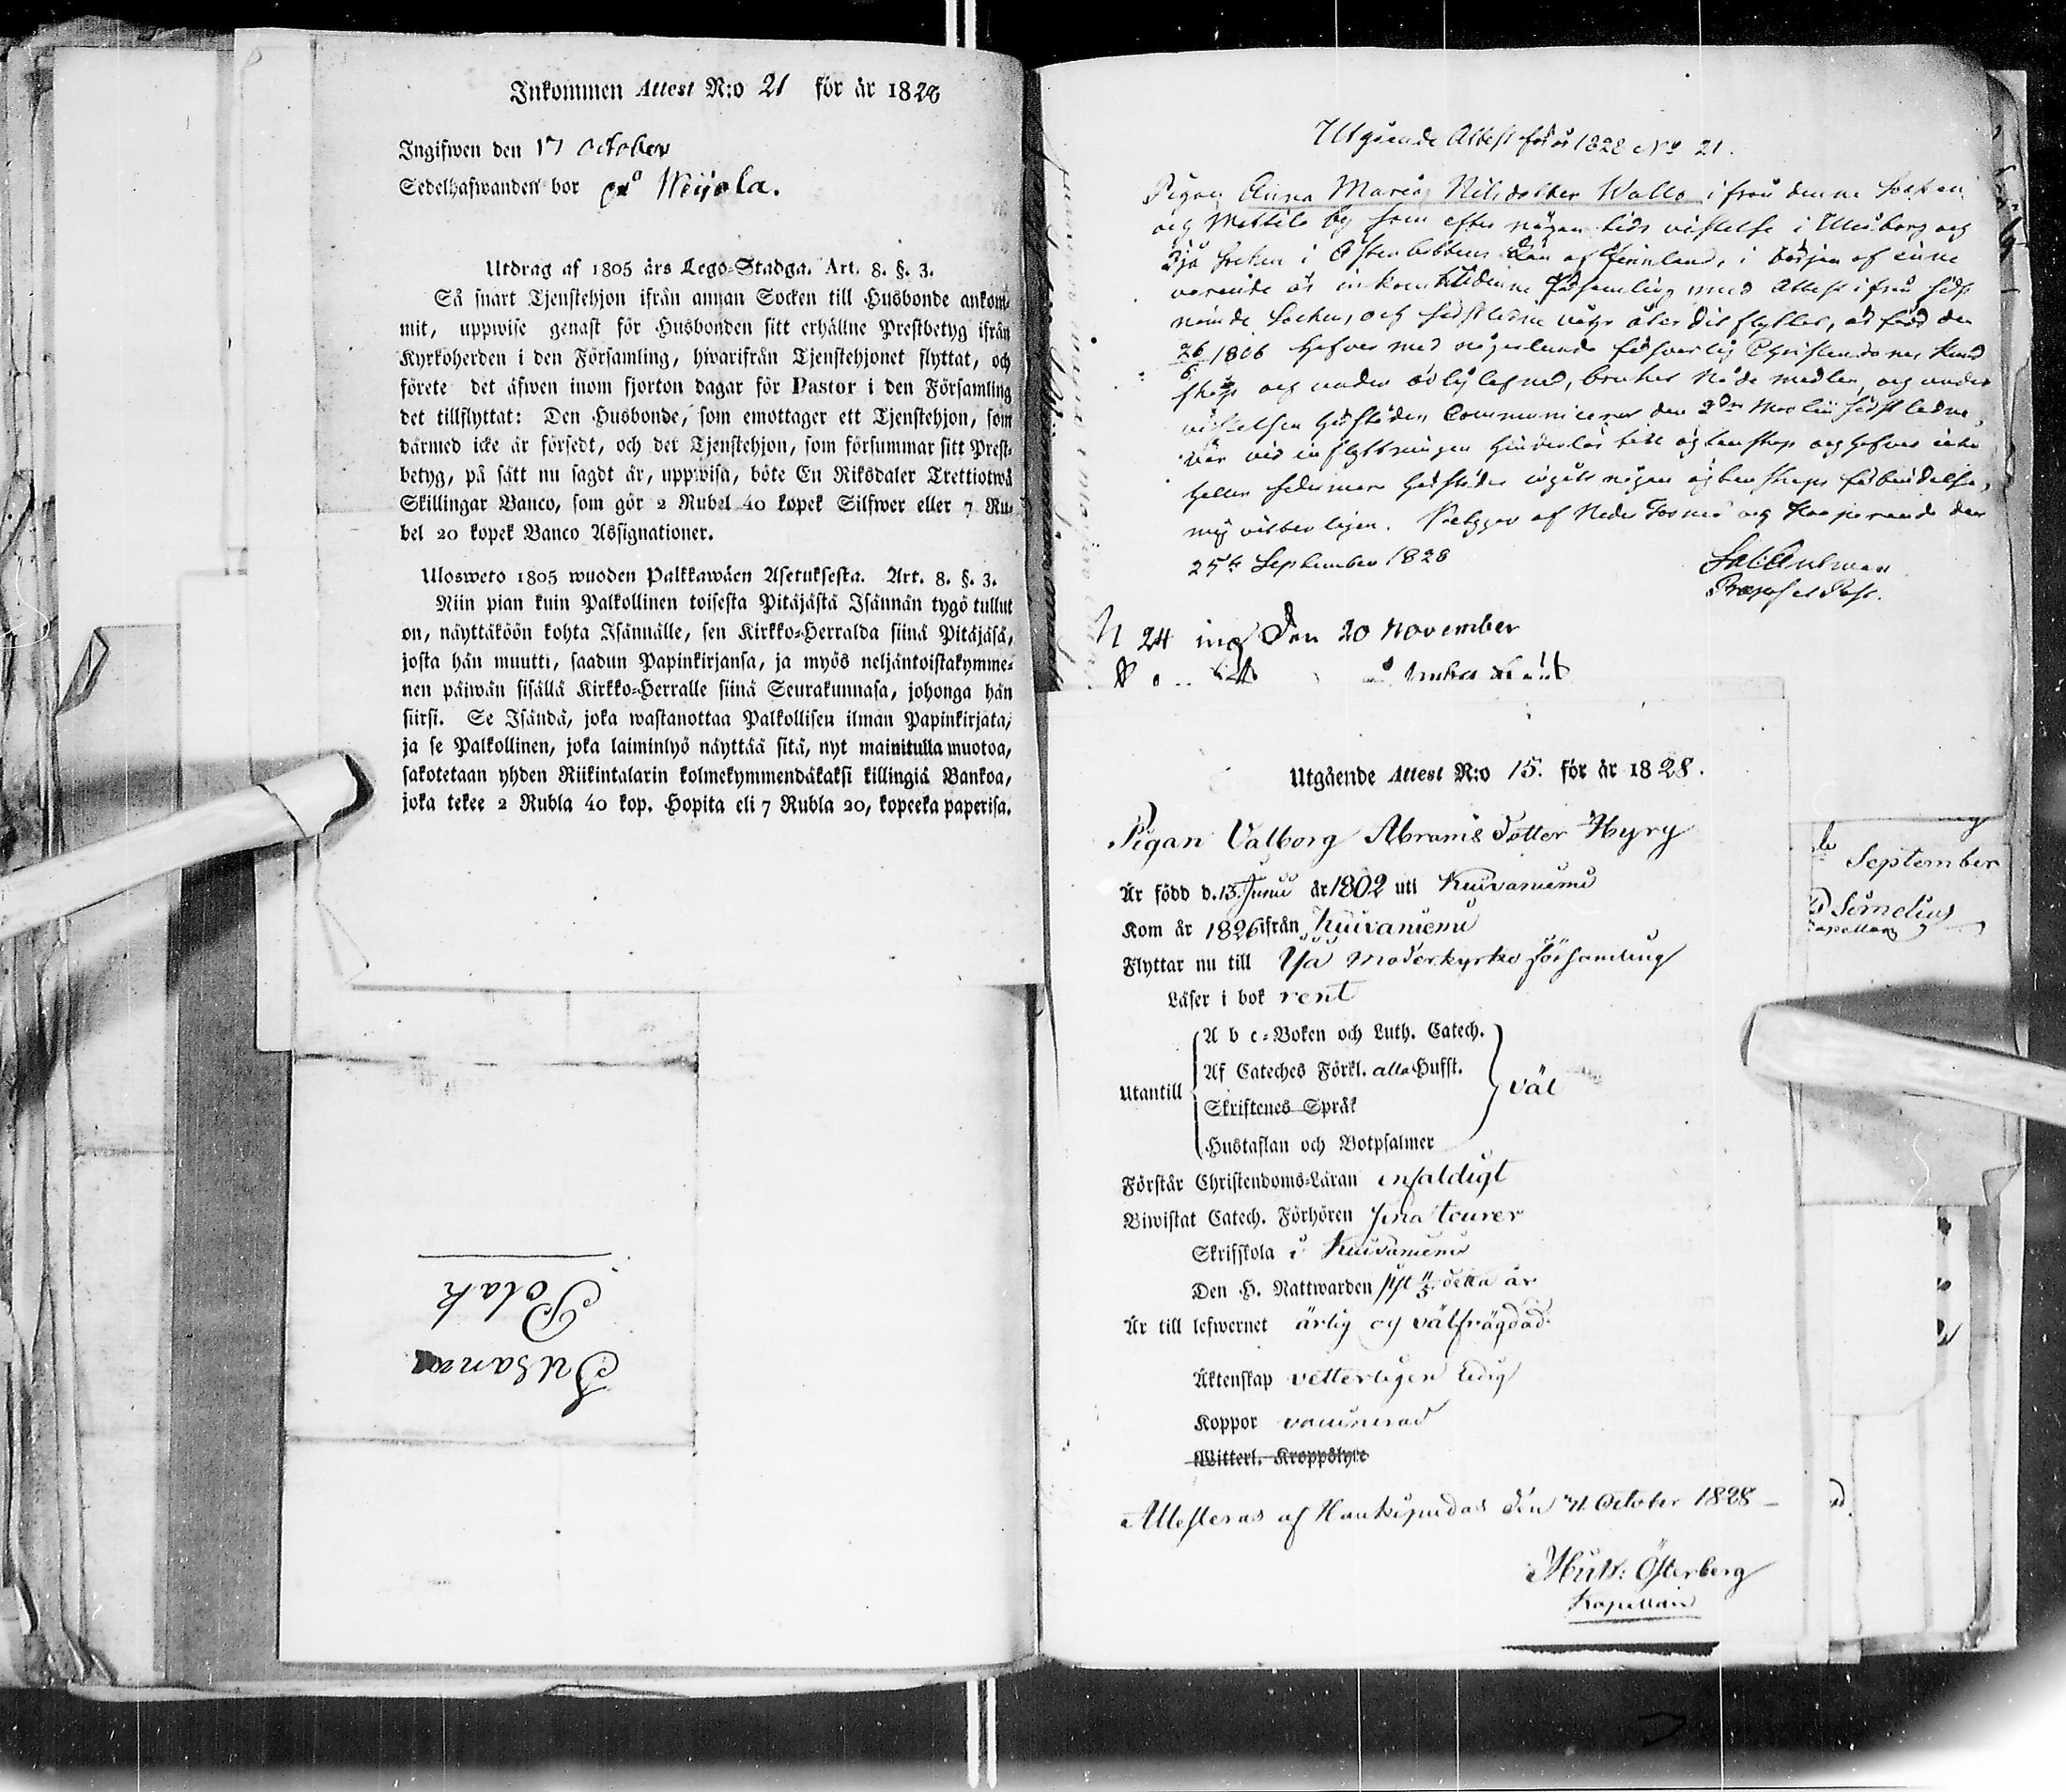 Inkommen Attest N:o 21 för år 1828
Ingifwen den 17 October
Sedelhafwanden bor på Weijola.
Utdrag af 1805 års Lego-Stadga. Art. 8. §. 3.
Så snart Tjenstehjon ifrån annan Socken till Husbonde ankom-
mit, uppwise genast för Husbonden sitt erhållne Prestbetyg ifrån
Kyrkoherden i den Församling, hwarifrån Tjenstehjonet flyttat, och
förete det äfwen inom fjorton dagar för Pastor i den Församling
det tillflyttat: Den Husbonde, som emottager ett Tjenstehjon, som
därmed icke är försedt, och det Tjenstehjon, som försummar sitt Prest-
betyg, på sätt nu sagdt är, uppwisa, böte En Riksdaler Trettiotwå
Skillingar Banco, som gör 2 Rubel 40 kopek Silfwer eller 7 Ru-
bel 20 kopek Banco Assignationer.
Ulosweto 1805 wuoden Palkkawäen Asetuksesta. Art. 8. §. 3.
Niin pian kuin Palkollinen toisesta Pitäjästä Isännän tygö tullut
on, näyttäköön kohta Isännälle, sen Kirkko-Herralda siinä Pitäjäsä,
josta hän muutti, saadun Papinkirjansa, ja myös neljäntoistakymme-
nen päiwän sisällä Kirkko-Herralle siinä Seurakunnasa, johonga hän
siirsi. Se Isändä, joka wastanottaa Palkollisen ilman Papinkirjata,
ja se Palkollinen, joka laiminlyö näyttää sitä, nyt mainitulla muotoa,
sakotetaan yhden Riikintalarin kolmekymmendäkaksi killingiä Bankoa,
joka tekee 2 Rubla 40 kop. Hopita eli 7 Rubla 20, kopeeka paperisa.
Susanna
Polak
Utgående Attest för år 1828 No 21.
Pigan Anna Maria Nilsdotter Wallo ifrån denne Socken
och Mattila by som efter någon tids vistelse i Uleåborg och
Ijo Socken i Österbottens Län af Finnland, i början af inne
varande år inkom till denne Församling med Attest ifrån sidst
nämnde Socken, och sidstledne våhr åter dit flyttar, är född den
26/6 1806 hafver med någorlunda försvarlig Christendoms kund
skap och under ärlig lefnad, brukat Nåde medlen, och under
vistelsen härstädes Communicerat den 2dra Martii sidstledne,
var vid inflyttningen hinderlös till ägtenskap och hafver icke
heller sedermera härstädes ingått någon ägtenskaps förbindelse,
mig vitterligen. Betygar af Neder Torneå och Haaparanda den
25te September 1828
Præpos et Past.
N 24 ing den 20 November
Utgående Attest N:o 15. för år 1828.
Pigan Valborg Abrams Dotter Hyry
Är född d. 13. Junii år 1802 uti Kuivaniemi
Kom år 1826 ifrån Kuivaniemi
Flyttar nu till Ijo Moderkyrko församling
Läser i bok rent
Utantill
A b c-Boken och Luth. Catech.
Af Cateches Förkl. alla Hufst.
Skriftenes Språk
Hustaflan och Botpsalmer
väl
Förstår Christendoms-Läran enfaldigt
Biwistat Catech. Förhören sina tourer
Skrifskola i Kuivaniemi
Den H. Nattwarden sist 11/5 detta år
Är till lefwernet ärlig och välfrägdad
Äktenskap vetterligen ledig
Koppor vaccinerad
Witterl. Kroppslyte
Attesteras af Haukipudas den 11. October 1828
Österberg
Kapellan
September
Simelius
Capellan